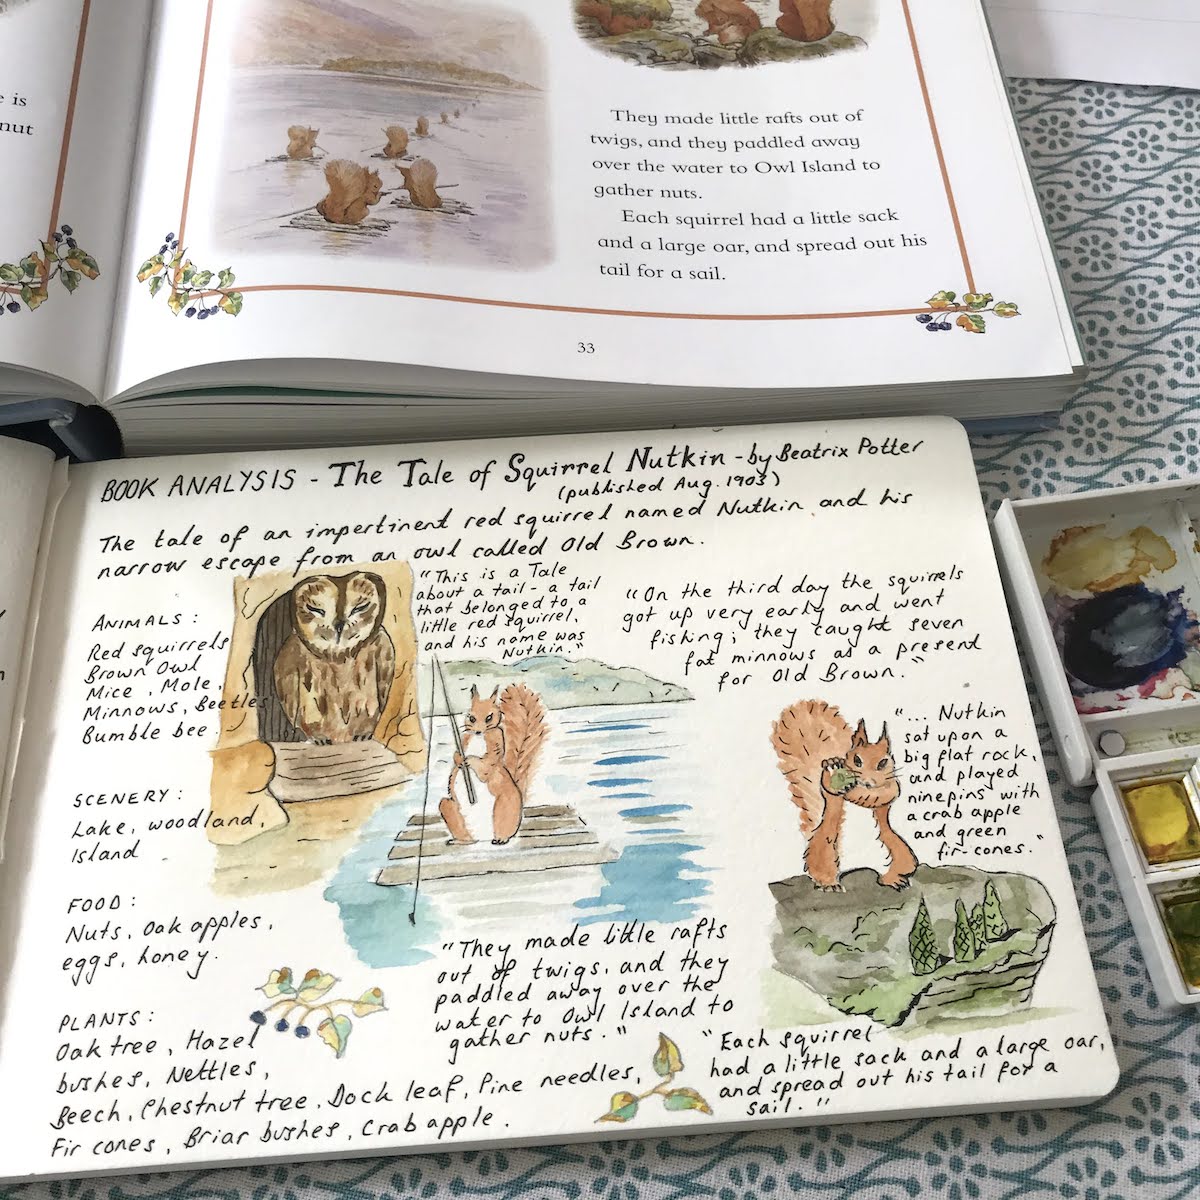 e is
nut
They made little rafts out of
twigs, and they paddled away
over the water to Owl Island to
gather nuts.
Each squirrel had a little sack
and a large oar, and spread out his
tail for a sail.
33
BOOK ANALYSIS - The Tale of Squirrel Nutkin - by Beatrix Potter
(published Aug. 1903)
The tale of an impertinent red squirrel named Nutkin and his
narrow escape from an owl called Old Brown.
"This is a Tale
about a tail - a tail
that belonged to a
little red squirrel,
and his name was
Nutkin."
"On the third day the squirrels
got up very early and went
fishing; they caught seven
fat minnows as a present
for Old Brown."
ANIMALS:
Red squirrels
Brown Owl
Mice, Mole,
Minnows, Beetles
Bumble bee.
"... Nutkin
sat upon a
big flat rock,
and played
ninepins with
a crab apple
and green
fir-cones."
SCENERY:
Lake, woodland,
Island
FOOD:
Nuts, Oak apples,
eggs, honey.
"They made little rafts
out of twigs, and they
paddled away over the
water to Owl Island to
gather nuts."
PLANTS:
Oak tree, Hazel
bushes, Nettles,
Beech, Chestnut tree, Dock leaf, Pine needles,
Fir cones, Briar bushes, Crab apple.
"Each squirrel
had a little sack and a large oar,
and spread out his tail for a
sail."